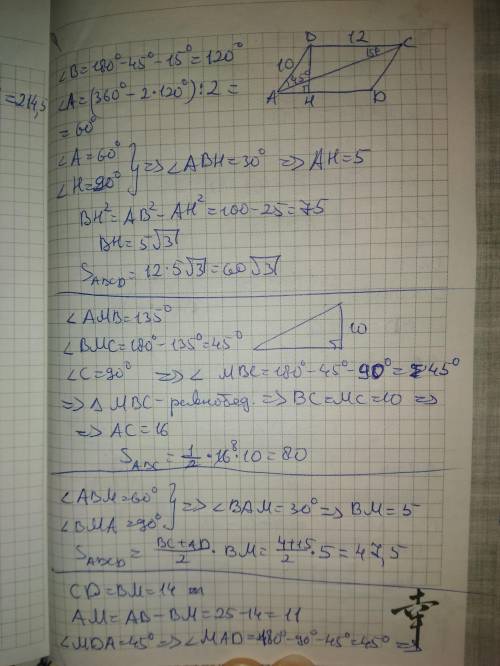 = 214,5
∠B=180°-45°-15°=120°
∠A=(360°-2·120°):2=
=60°
∠A=60°
∠H=90° } => ∠ABH=30° => AH=5
BH²=AB²-AH²=100-25=75
BH=5√3
S_ABCD=12·5√3=60√3
B 12 C
10 45° 15°
A H D
∠AMB=135°
∠BMC=180°-135°=45°
10
∠C=90° => ∠ MBC=180°-45°-90°=45°
=> △ MBC - равнобед. => BC=MC=10 =>
=> AC=16
S_ABC=1/2·16·10=80
8
∠ABM=60°
∠BMA=90° } => ∠BAM=30° => BM=5
S_ABCD=BC+AD/2·BM=4+15/2·5=47,5
CD=BM=14
AM=AB-BM=25-14=11
∠MDA=45° => ∠MAD=180°-90°-45°=45° =>